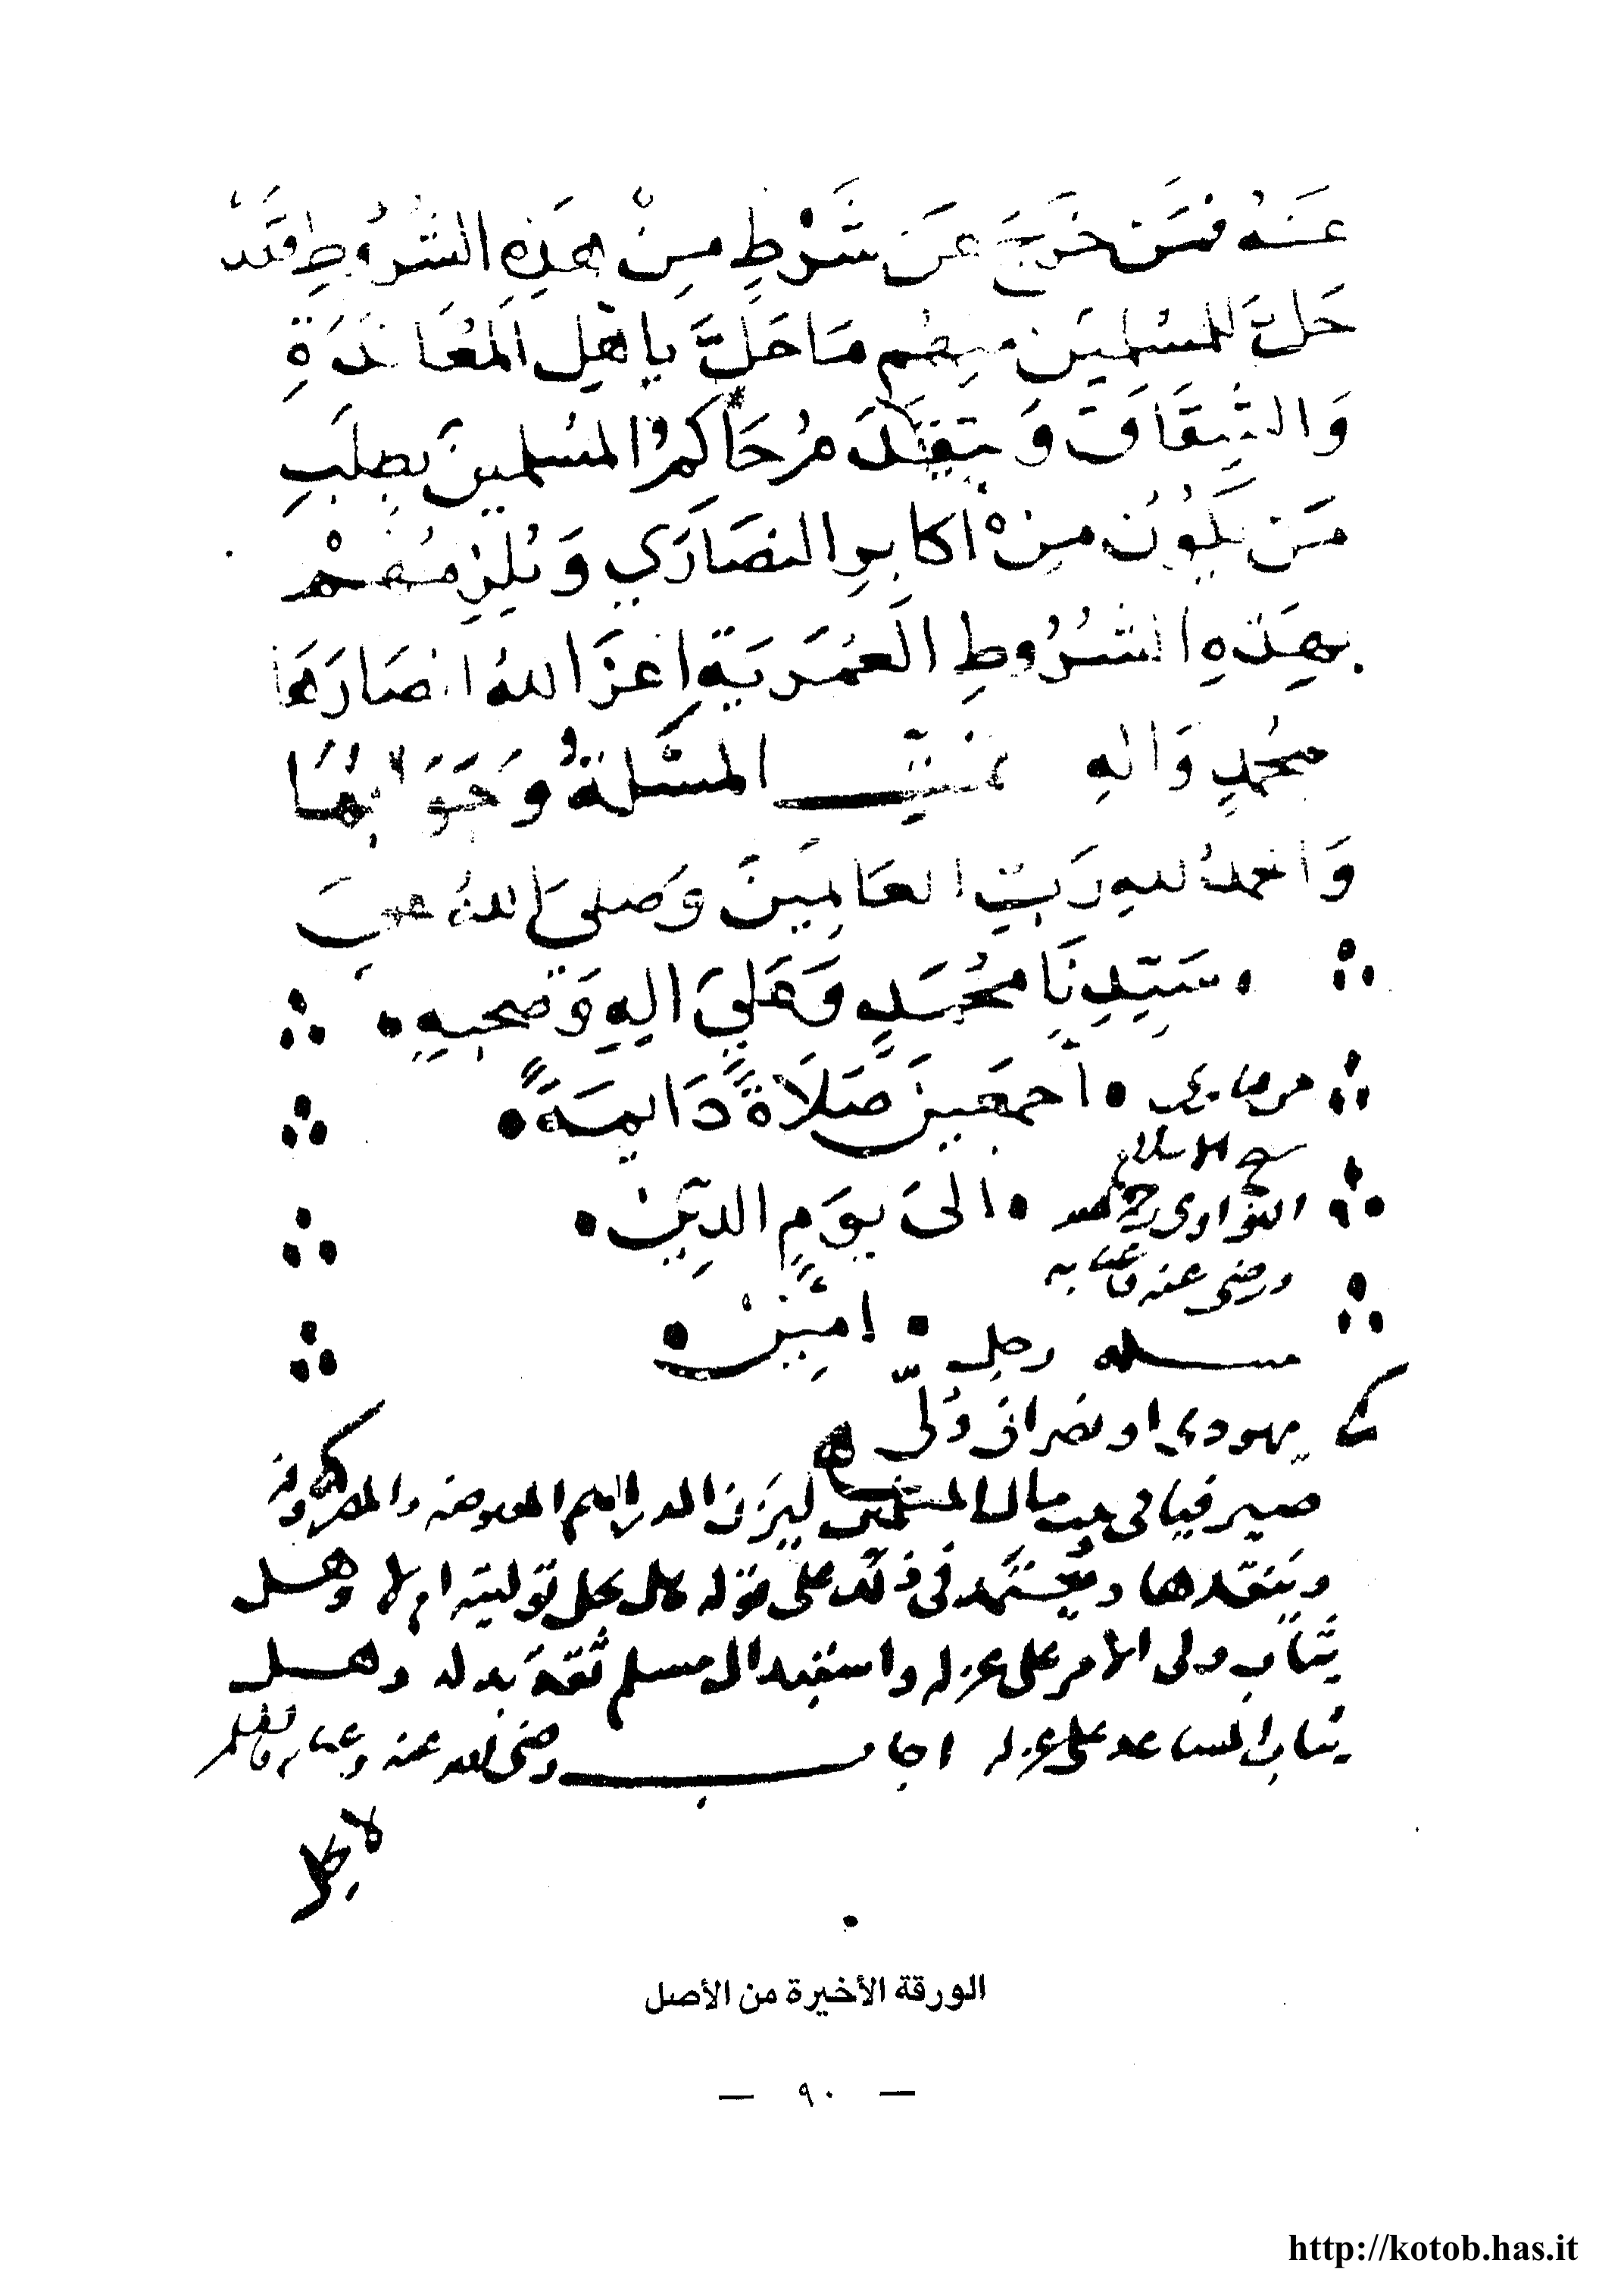 عَنهُ فمَن خَرَجَ عَن شَرْطٍ مِنْ هَذِهِ الشُرُوطِ فقَد
حَلَّ لِلمُسْلمِينَ مِنهُم مَا حَلَّ بِاهْلِ المُعَانَدَةِ
وَالشِقَاقَ وَيتقدَم حَاكمُ المُسلمِينَ بطلَبِ
مَن يَكوُن مِنْ اكابرِ النصَارَي وَيُلزِمُهُمْ
بهَذهِ الشُرُوطِ العُمَرَيةِ اعَزَ اللهُ انصَارَهَا
محُمدٍ وَالهِ تمت المسْئلةُ وَجَوَابُهَا
وَالحمدُ للهِ رَبِّ العَالمِينَ وَصَلىَ اللهُ عَلىَ
سَيّدِنَا محُمَدٍ وَعَلىَ الِهِ وَصَحبِهِ
من فتاوى . اجمَعَين صَلاَةً دَايمَةً .
شيخ الاسلام
النواوى رحمه الله . الىَ يوَمِ الدِينِ .
ورضى عنه وعنا به
مسله رجل . امِين .
يهودى او نصرانى وُلّى
صيرفيا فى بيت مال المسلمين ليزن الدراهم المقبوضه والمصروفه
وينقدها ويُعتَمد فى ذلك على قوله هل يحل توليته ام لا وهل
يُثاب ولى الامر على عزله واستبدال مسلم ثقة بدله وهل
يثاب المساعد على عزله اجاب رضى الله عنه وعنا به
لا يحل
الورقة الأخيرة من الأصل
— ٩٠ —
http://kotob.has.it